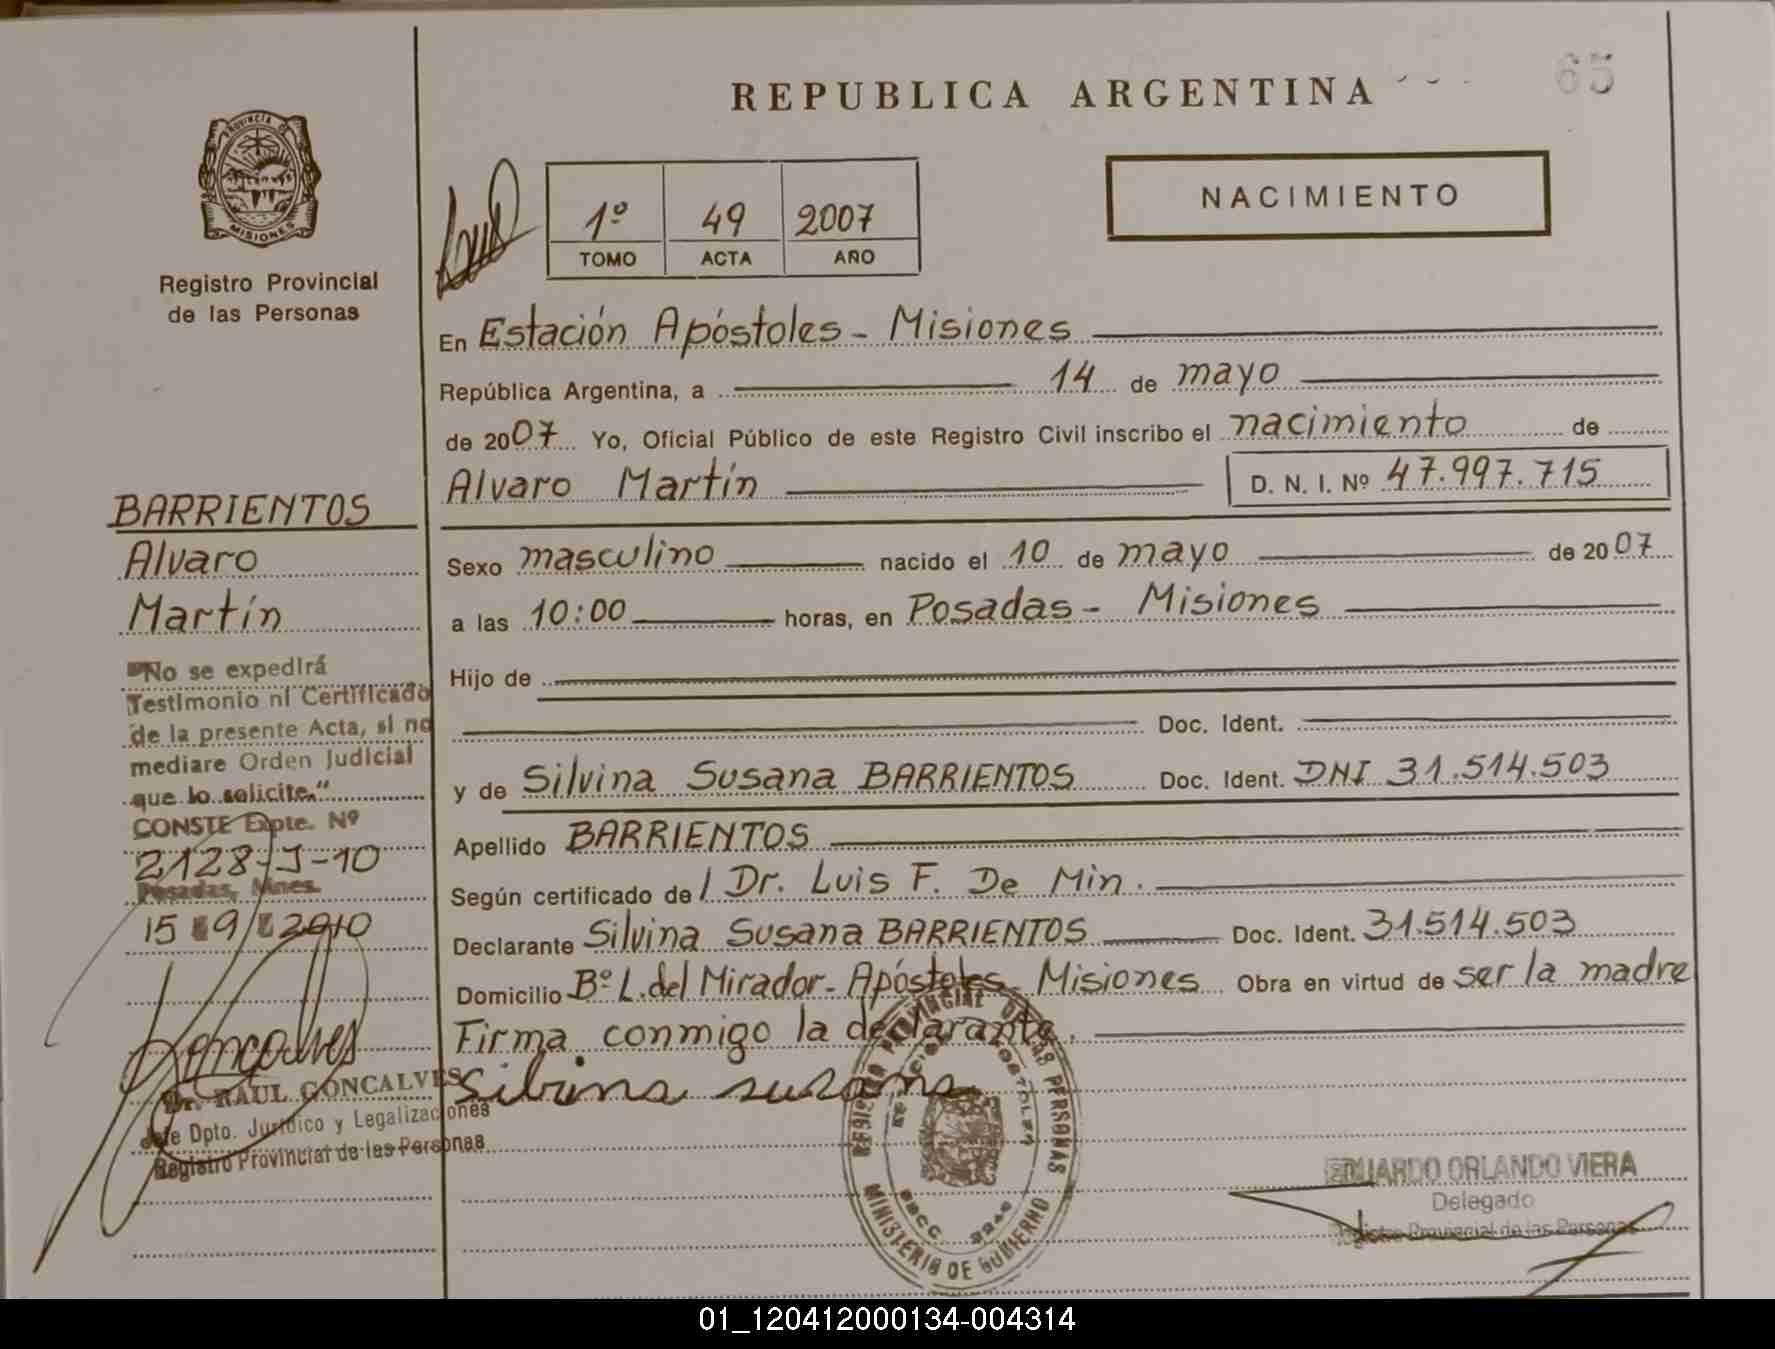 REPUBLICA ARGENTINA
65
PROVINCIA DE
MISIONES
Registro Provincial
de las Personas
1º 49 2007
TOMO ACTA AÑO
NACIMIENTO
En Estación Apóstoles - Misiones
República Argentina, a 14 de mayo
de 2007 Yo, Oficial Público de este Registro Civil inscribo el nacimiento de
Alvaro Martín D. N. I. Nº 47.997.715
Sexo masculino nacido el 10 de mayo de 2007
a las 10:00 horas, en Posadas - Misiones
Hijo de
Doc. Ident.
y de Silvina Susana BARRIENTOS Doc. Ident. DNI 31.514.503
Apellido BARRIENTOS
Según certificado de Dr. Luis F. De Min.
Declarante Silvina Susana BARRIENTOS Doc. Ident. 31.514.503
Domicilio Bº L. del Mirador - Apóstoles Misiones Obra en virtud de ser la madre
Firma conmigo la declarante.
Silvina susana
BARRIENTOS
Alvaro
Martín
"No se expedirá
Testimonio ni Certificado
de la presente Acta, si no
mediare Orden Judicial
que lo solicite."
CONSTE Expte. Nº
2128-J-10
Posadas, Mnes.
15 9 2010
Goncalves
Dr. RAUL GONCALVES
Jefe Dpto. Jurídico y Legalizaciones
Registro Provincial de las Personas
REGISTRO PROVINCIAL DE LAS PERSONAS
MINISTERIO DE GOBIERNO
EDUARDO ORLANDO VIERA
Delegado
Registro Provincial de las Personas
01_120412000134-004314